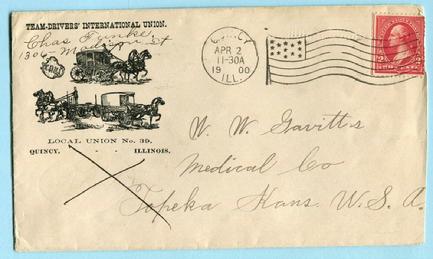 TEAM-DRIVERS' INTERNATIONAL UNION.
Chas
1306 Madison St
LOCAL UNION No. 39,
QUINCY, - - ILLINOIS.
QUINCY
APR 2
11-30A
19 00
ILL.
W. W. Gavitts
Medical Co
Topeka Kans. U.S.A.
2 2